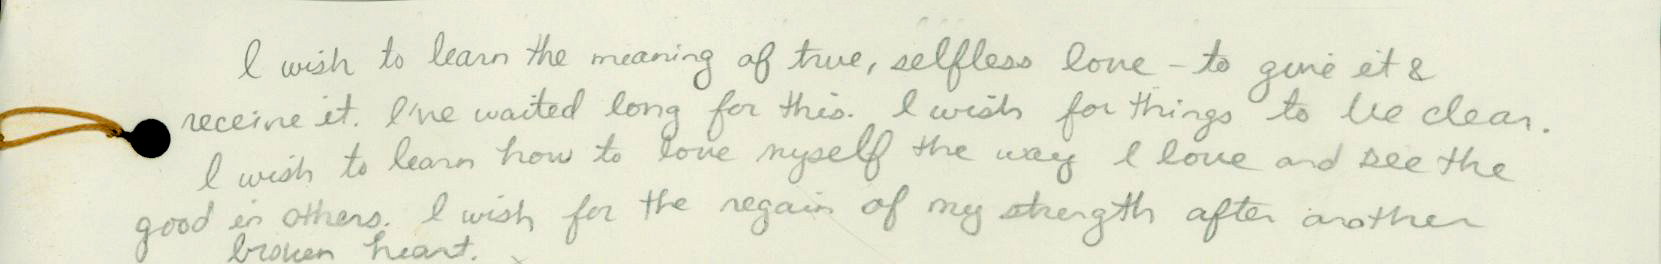 I wish to learn the meaning of true, selfless love - to give it &
receive it. I've waited long for this. I wish for things to be clear.
I wish to learn how to love myself the way I love and see the
good in others. I wish for the regain of my strength after another
broken heart.